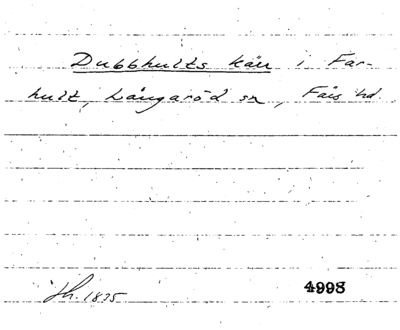 Dubbhults kärr i Far-
hult, Långaröd sn, Färs hd.
1895 4998